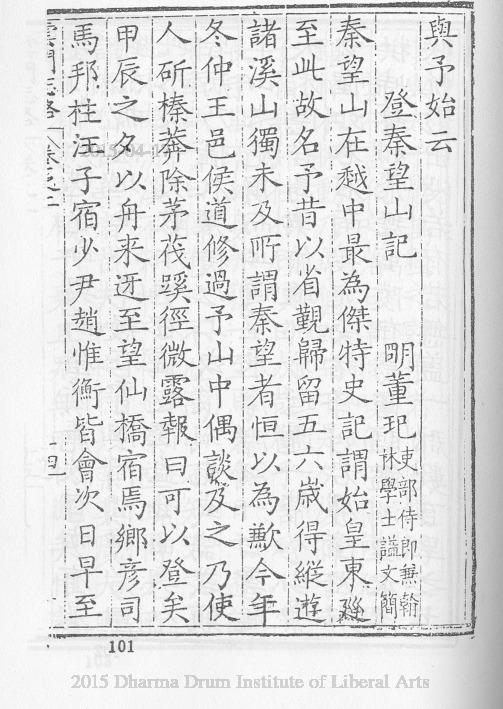 與予始云
登秦望山記 明董玘 吏部侍郎兼翰林學士謚文簡
秦望山在越中最為傑特史記謂始皇東廵
至此故名予昔以省覲歸留五六歲得縱遊
諸溪山獨未及所謂秦望者恒以為歉今年
冬仲王邑侯道修過予山中偶談及之乃使
人斫榛莽除茅茷蹊徑微露報曰可以登矣
甲辰之夕以舟来迓至望仙橋宿焉鄉彦司
馬邦柱汪子宿少尹趙惟衡皆會次日早至
雲門志略 卷之二
四
101
2015-04-17
2015 Dharma Drum Institute of Liberal Arts